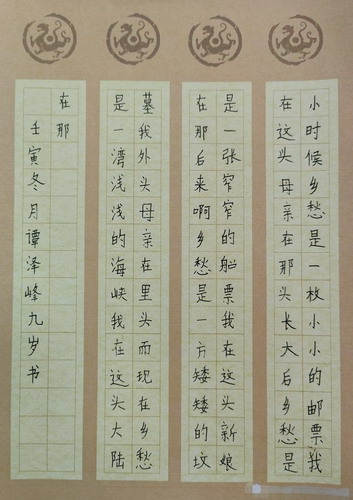 小时候乡愁是一枚小小的邮票我
在这头母亲在那头长大后乡愁是
是一张窄窄的船票我在这头新娘
在那后来啊乡愁是一方矮矮的坟
墓我外头母亲在里头而现在乡愁
是一湾浅浅的海峡我在这头大陆
在那
壬寅冬月谭泽峰九岁书